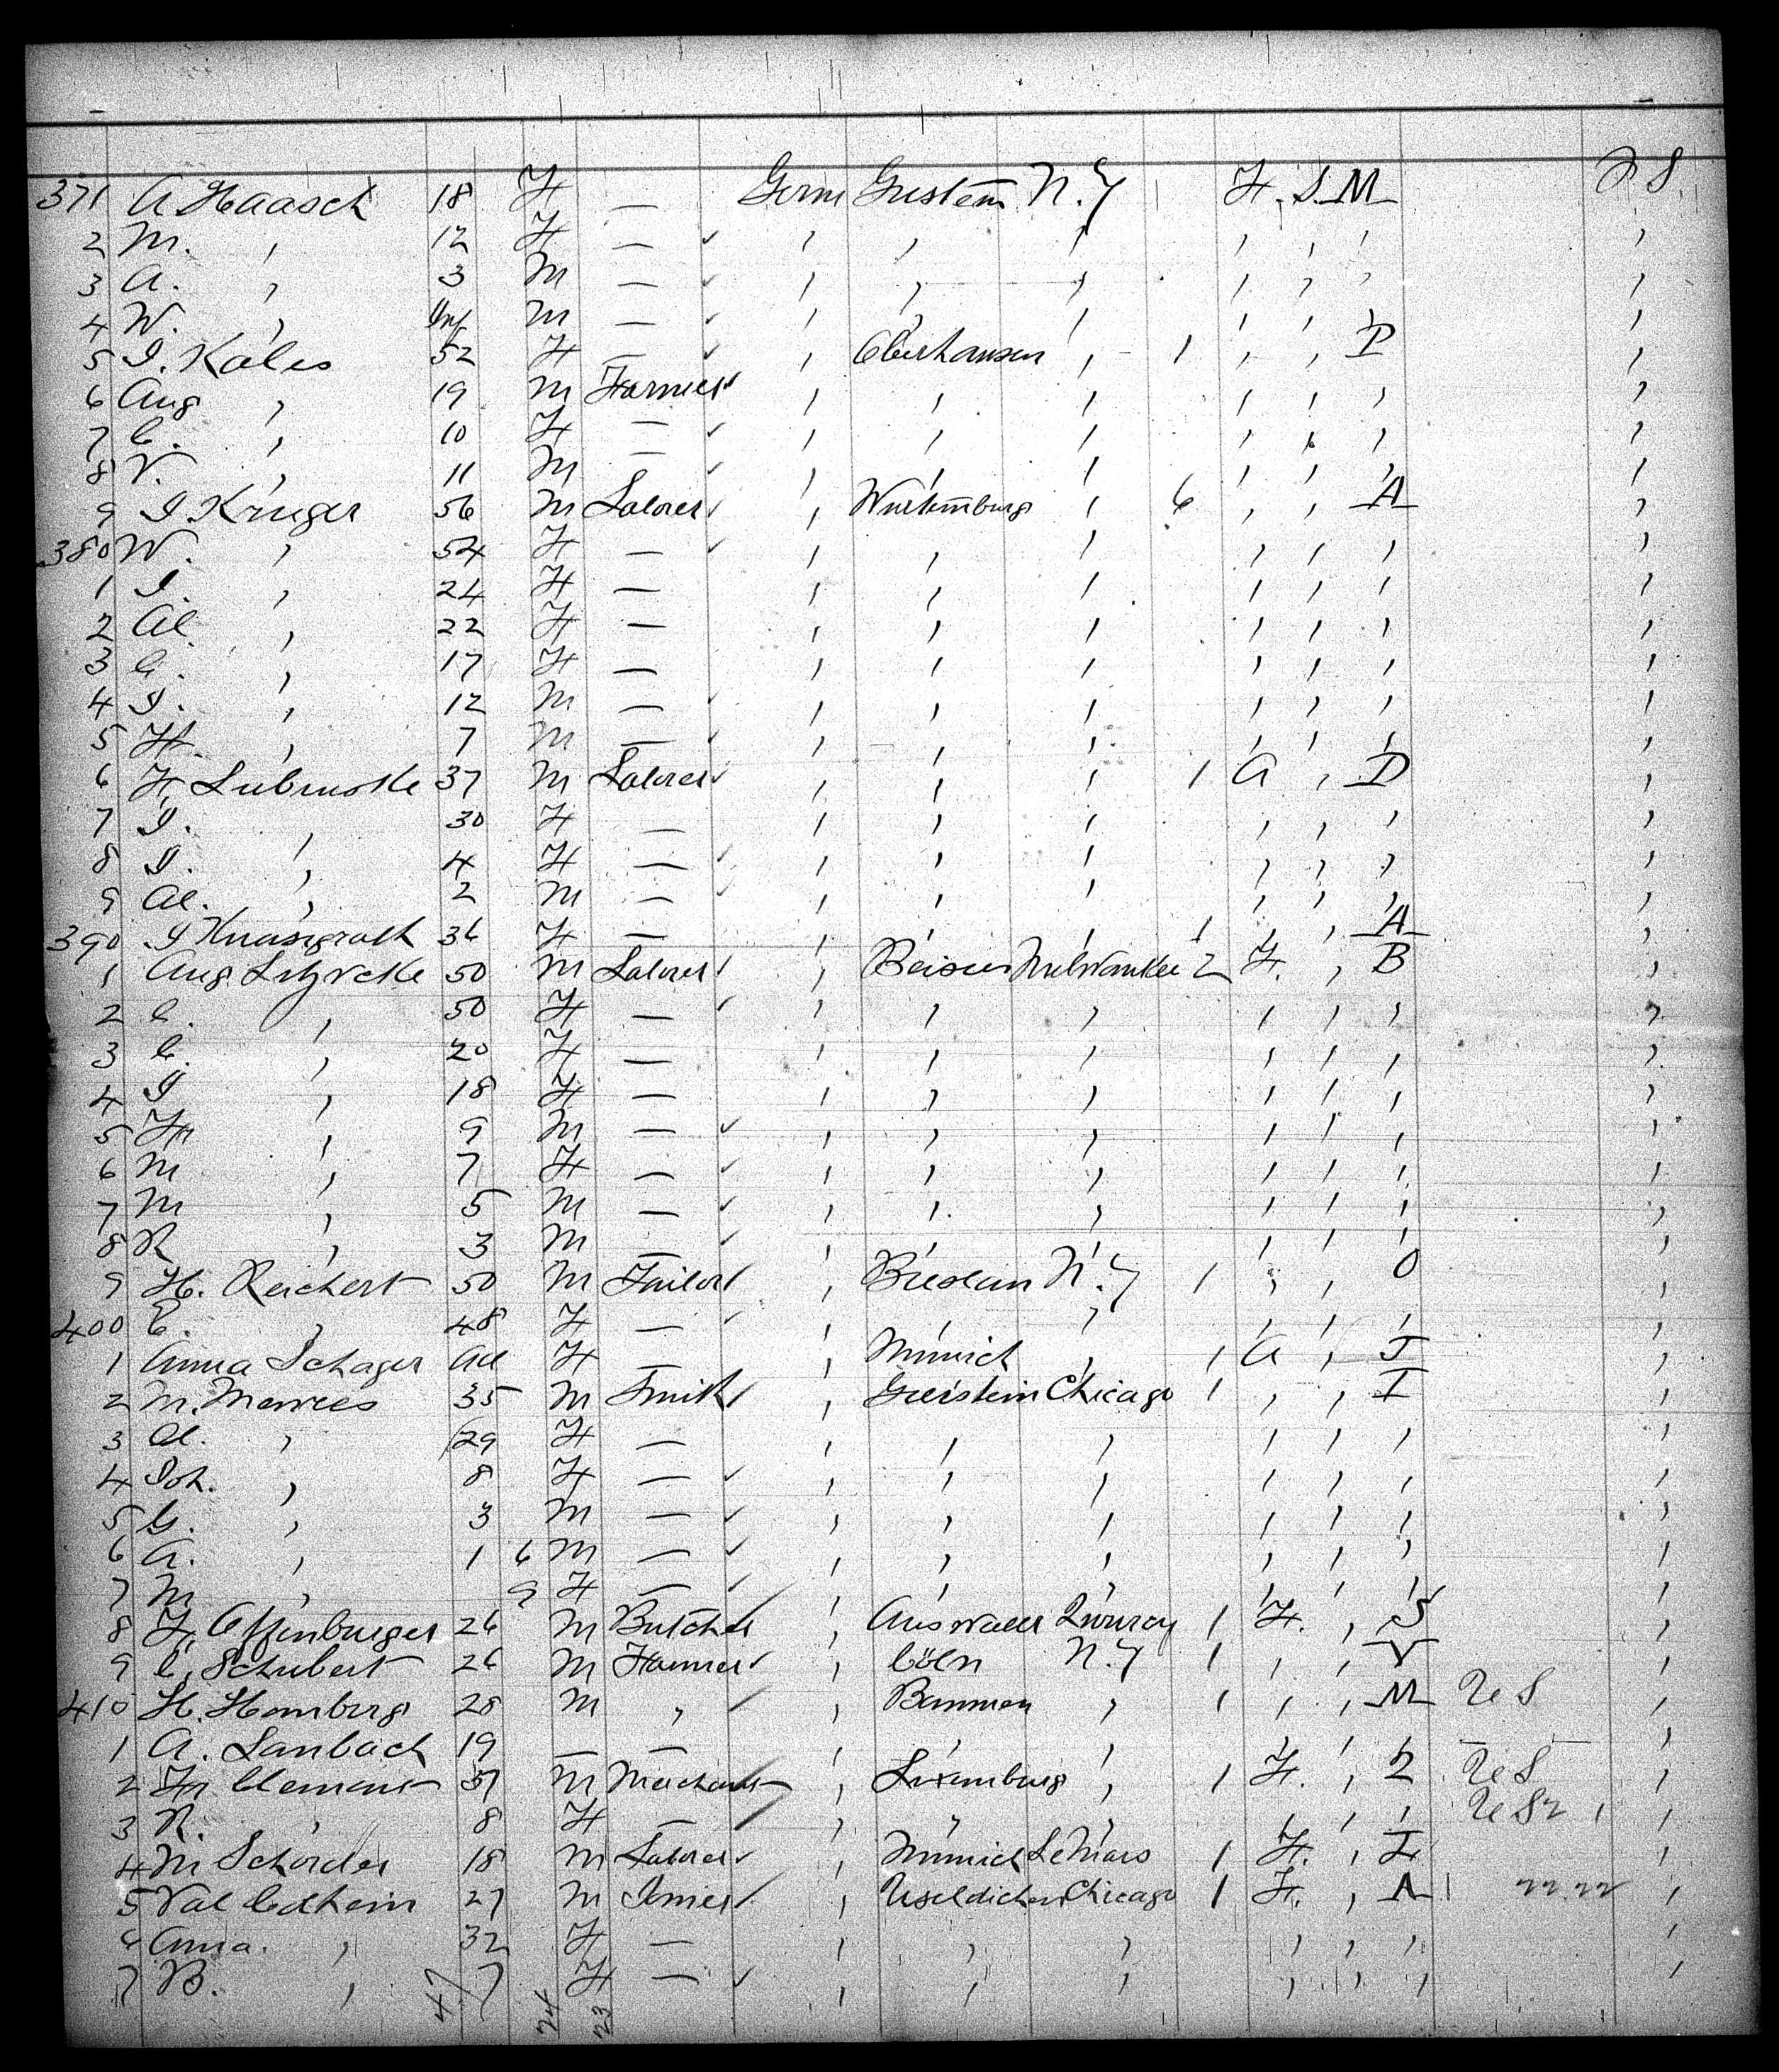 371 A Haasch 18 F — Germ Gustem N.Y F. S. M
2 M. , 12 F — , , , , , , ,
3 A. , 3 M — , , , , , , ,
4 W. , Inf M — , , , , , , ,
5 J. Kales 52 F — , Oberhausen , 1 , , P ,
6 Aug , 19 M Farmer , , , , , , ,
7 C. , 10 F — , , , , , , ,
8 V. , 11 M — , , , , , , ,
9 J Kruger 56 M Laborer , Wurtemburg , 6 , , A ,
380 W. , 54 F — , , , , , , ,
1 J. , 24 F — , , , , , , ,
2 Al , 22 F — , , , , , , ,
3 C. , 17 F — , , , , , , ,
4 J. , 12 M — , , , , , , ,
5 H. , 7 M — , , , , , , ,
6 F 37 M Laborer , , , 1 A , D ,
7 J. , 30 F — , , , , , , ,
8 J. , 4 F — , , , , , , ,
9 Al. , 2 M — , , , , , , ,
390 J 36 F — , , , 1 , , A ,
1 Aug. 50 M Laborer , Milwaukee 2 F. , B ,
2 C. , 50 F — , , , , , , ,
3 C. , 20 F — , , , , , , ,
4 J , 18 F — , , , , , , ,
5 Fr , 9 M — , , , , , , ,
6 M , 7 F — , , , , , , ,
7 M , 5 M — , , , , , , ,
8 R , 3 M — , , , , , , ,
9 H. Reichert 50 M Tailor , Breslau N.Y 1 , , O ,
400 C. , 48 F — , , , , , , ,
1 Anna Schager Ad F — , Munich , 1 A , J ,
2 M. 35 M Smith , Chicago 1 , , I ,
3 Al. , 29 F — , , , , , , ,
4 Joh. , 8 F — , , , , , , ,
5 G. , 3 M — , , , , , , ,
6 A. , 1 6 M — , , , , , , ,
7 M , 9 F — , , , , , , ,
8 F. Offenburger 26 M Butcher , 1 F. , S ,
9 C. Schubert 26 M Farmer , Cöln N.Y 1 , , V ,
410 H. Homberg 28 M , , Barmen , 1 , , M ,
1 A. Lanbach 19 — — , , , , , , — — ,
2 Fr Clemens 37 M Merchant , Luxemburg , 1 F. , 2 ,
3 R. , 8 F — , , , , , , ,
4 M Schorder 18 M Laborer , Munich Le Mars 1 F. , ,
5 Val 27 M , Chicago 1 F. , A ,
6 Anna. , 32 F — , , , , , , ,
7 B. , 7 F — , , , , , , ,
47 24 23